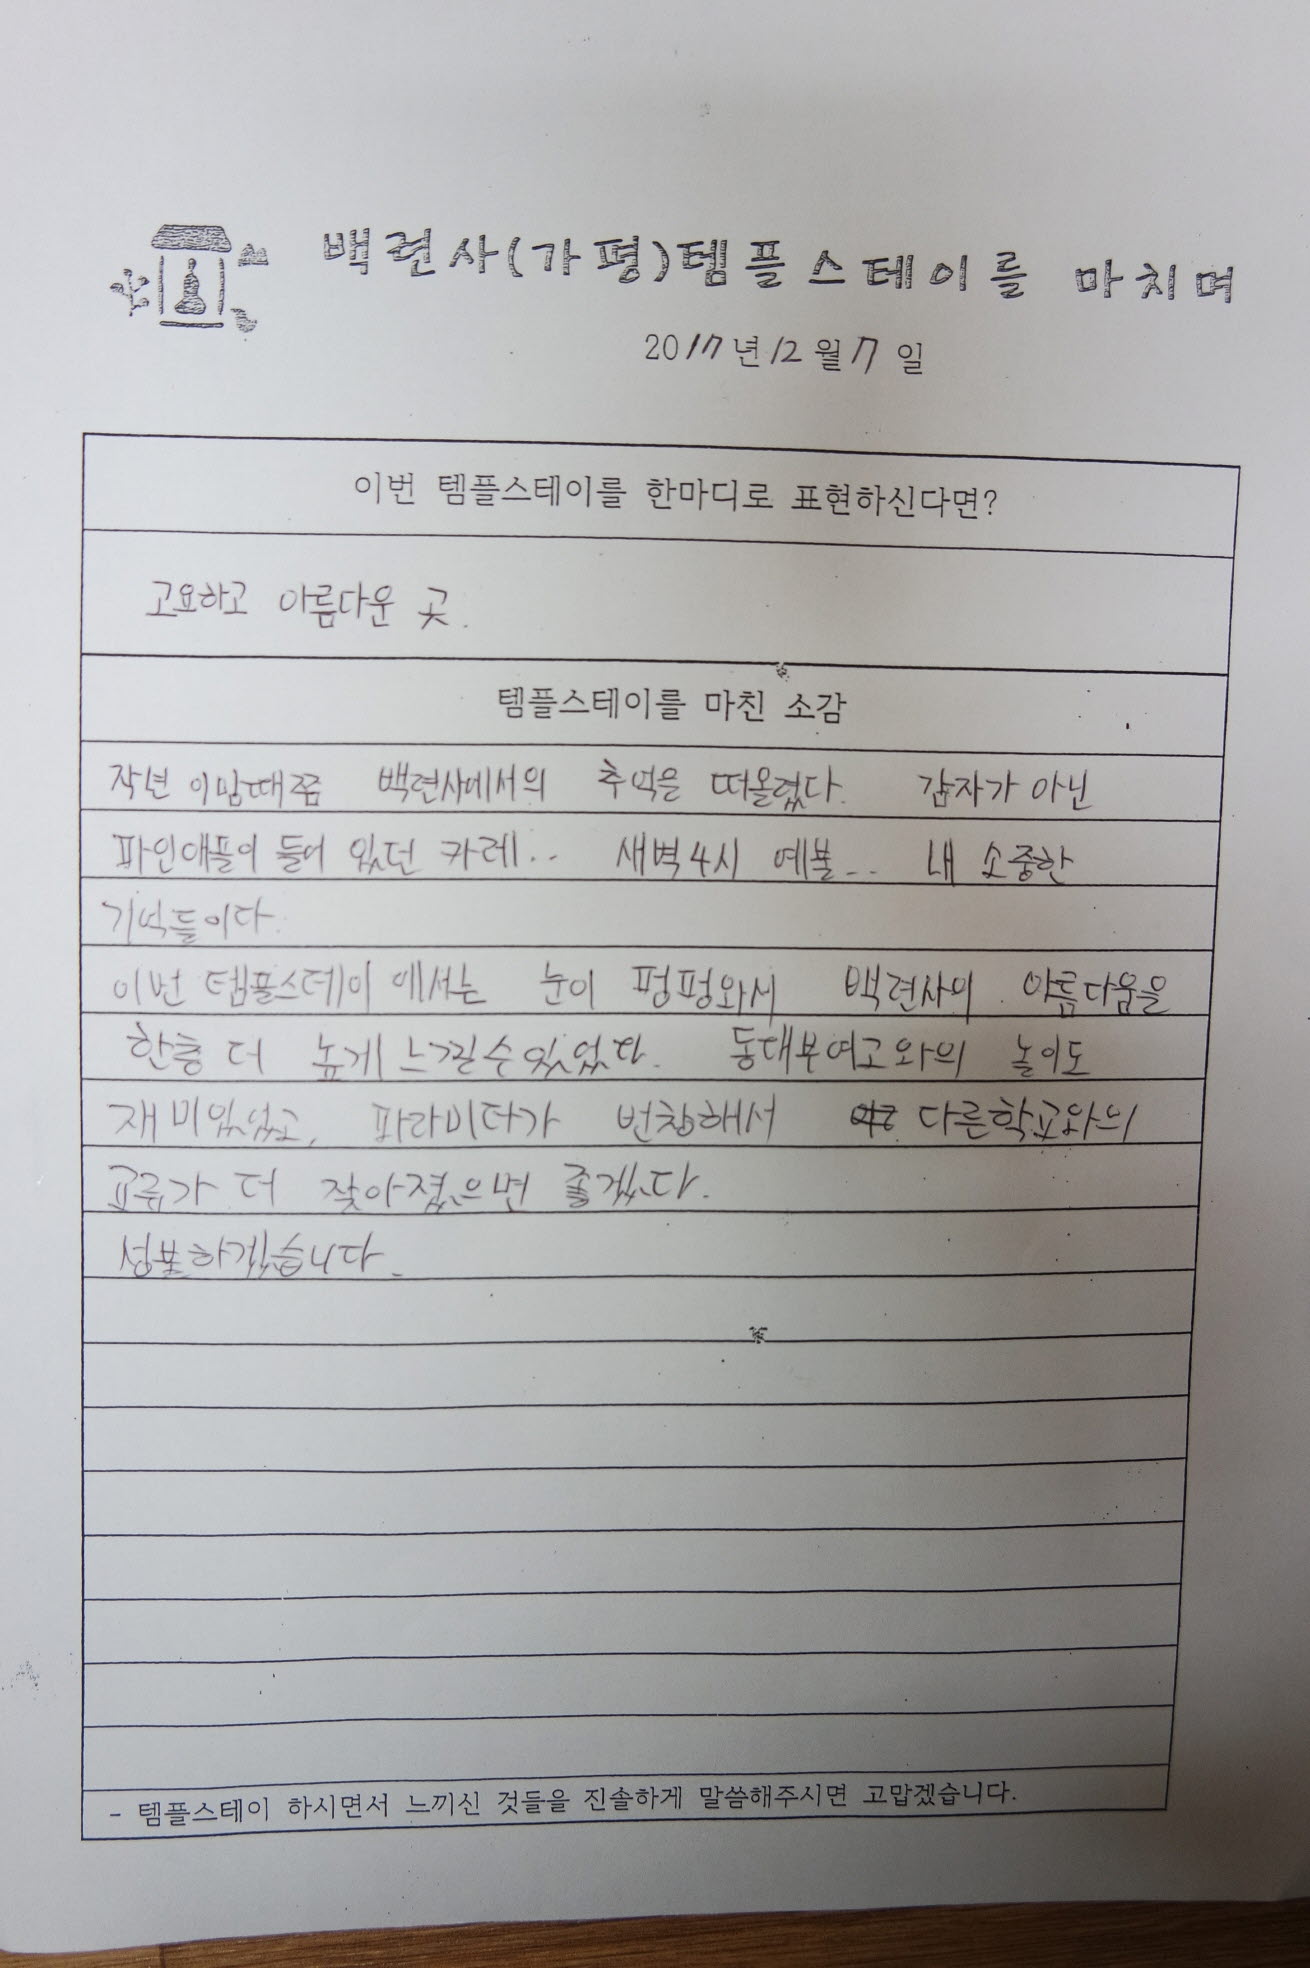 백련사(가평)템플스테이를 마치며
2017년 12월 7일
이번 템플스테이를 한마디로 표현하신다면?
고요하고 아름다운 곳.
템플스테이를 마친 소감
작년 이맘때쯤 백련사에서의 추억을 떠올렸다. 감자가 아닌
파인애플이 들어 있던 카레.. 새벽4시 예불... 내 소중한
기억들이다.
이번 템플스테이 에서는 눈이 펑펑와서 백련사의 아름다움을
한층 더 높게 느낄수 있었다. 동대부여고와의 놀이도
재미있었고, 파라미타가 번창해서 다른학교와의
교류가 더 잦아졌으면 좋겠다.
성불하겠습니다.
- 템플스테이 하시면서 느끼신 것들을 진솔하게 말씀해주시면 고맙겠습니다.